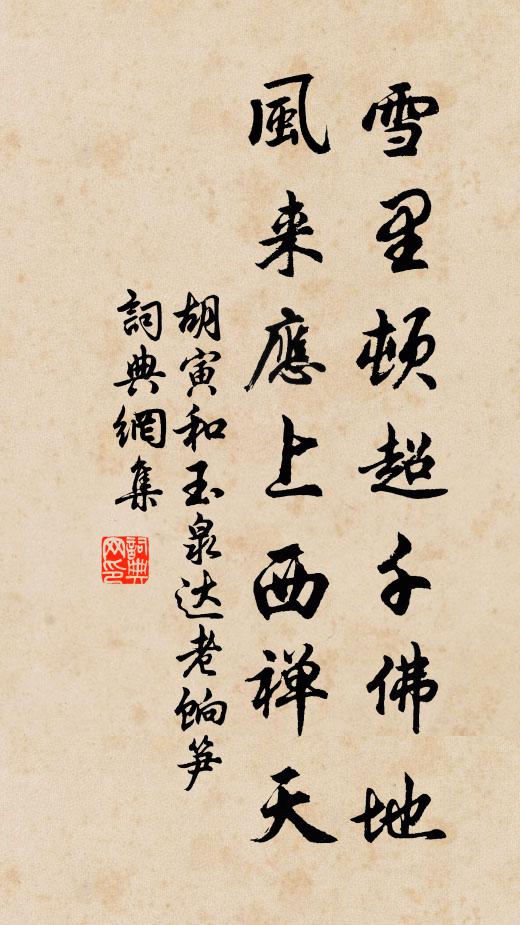 雪里頓超千佛地
風来應上西禅天
胡寅和玉泉达老餉笋
詞典網集
詞典网印